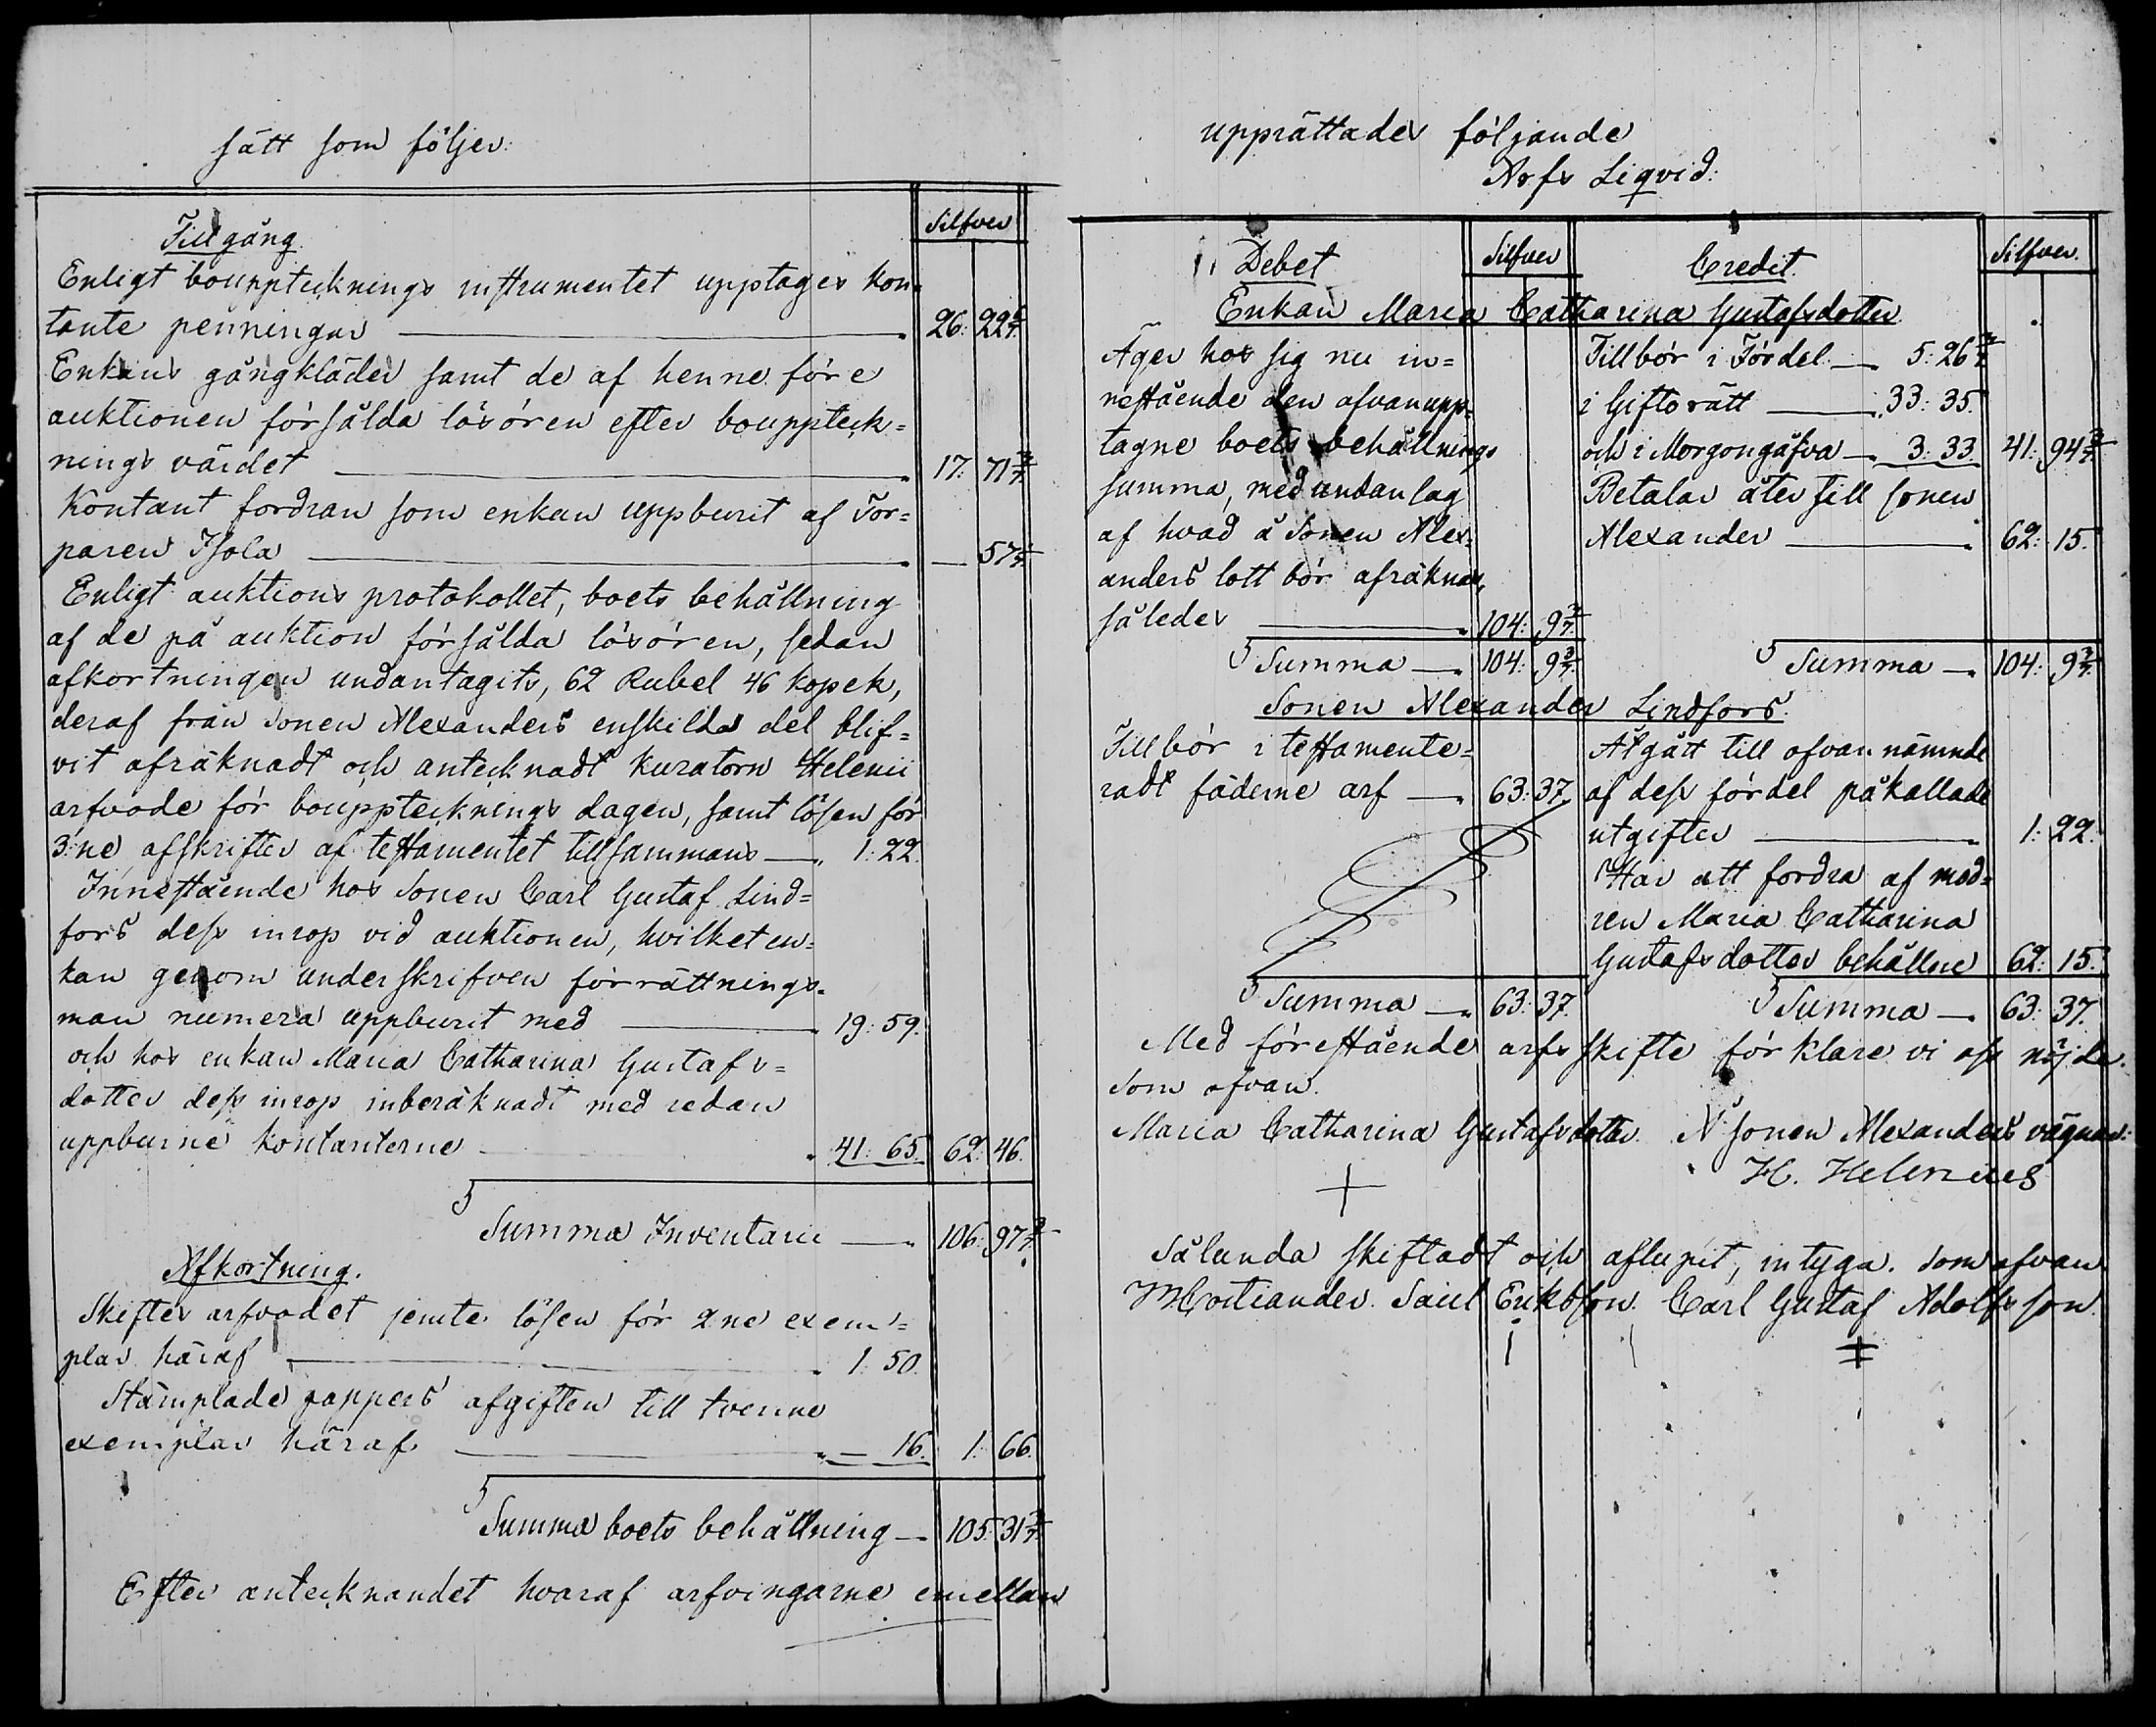 sätt som följer:
Tillgång
Silfver
Enligt bouppteknings instrumentet upptages kon=
tante penningar — 26: 22 6/7
Enkans gångkläder samt de af henne före
auktionen försålda lösören efter bouppteck=
nings värdet — 17: 71 3/7
Kontant fordran som enkan uppburit af Tor=
paren Isola — 57 1/7
Enligt auktions protokollet, boets behållning
af de på auktion försålda lösören, sedan
afkortningen undantagits, 62 Rubel 46 kopek,
deraf från sonen Alexanders enskilda del blif=
vit afräknadt och antecknadt kuratorn Helenii
arfvode för boupptecknings dagen, samt lösen för
3:ne afskrifter af testamentet tillsammans — 1: 22.
Innestående hos Sonen Carl Gustaf Lind=
fors dess inrop vid auktionen, hvilket en=
kan genom underskrifven förrättnings=
man numera uppburit med — 19: 59.
och hos enkan Maria Catharina Gustafs=
dotter dess inrop inberäknadt med redan
uppburne kontanterne — 41: 65. 62: 46.
Summa Inventarii — 106: 97 3/7
Afkortning.
Skiftes arfvodet jemte lösen för 2ne exem=
plar häraf — 1: 50.
Stämplade pappers afgiften till tvenne
exemplar häraf — 16. 1: 66.
Summa boets behållning — 105: 31 3/7
Efter antecknandet hvaraf arfvingarne emellan
upprättades följande
Arfs Liqvid:
Debet Silfver Credit. Silfver.
Enkan Maria Catharina Gustafsdotter
Äger hos sig nu in=
nestående den ofvanupp=
tagne boets behållnings
summa, med undantag
af hvad å Sonen Alex=
anders lott bör afräknas,
således — 104: 9 3/7
Summa — 104: 9 3/7
Tillbör i Fördel — 5: 26 3/7
i Giftorätt — 33: 35.
och i Morgongåfva — 3: 33. 41: 94 3/7
Betalar åter till sonen
Alexander — 62: 15.
Summa — 104: 9 3/7
Sonen Alexander Lindfors.
Tillbör i testamente=
radt fäderne arf — 63: 37.
Summa — 63: 37.
Åtgått till ofvannämnde
af dess fördel påkallade
utgifter — 1: 22.
Har att fordra af mod=
ren Maria Catharina
Gustafsdotters behållne 62: 15.
Summa — 63: 37.
Med förestående arfs skifte förklare vi oss nöjde.
som ofvan.
Maria Catharina Gustafsdotter. Å sonen Alexanders vägnar:
H. Helenius
Sålunda skiftadt och aflupit, intyga. som ofvan
Costiander. Saul Eriksson. Carl Gustaf Adolfsson.